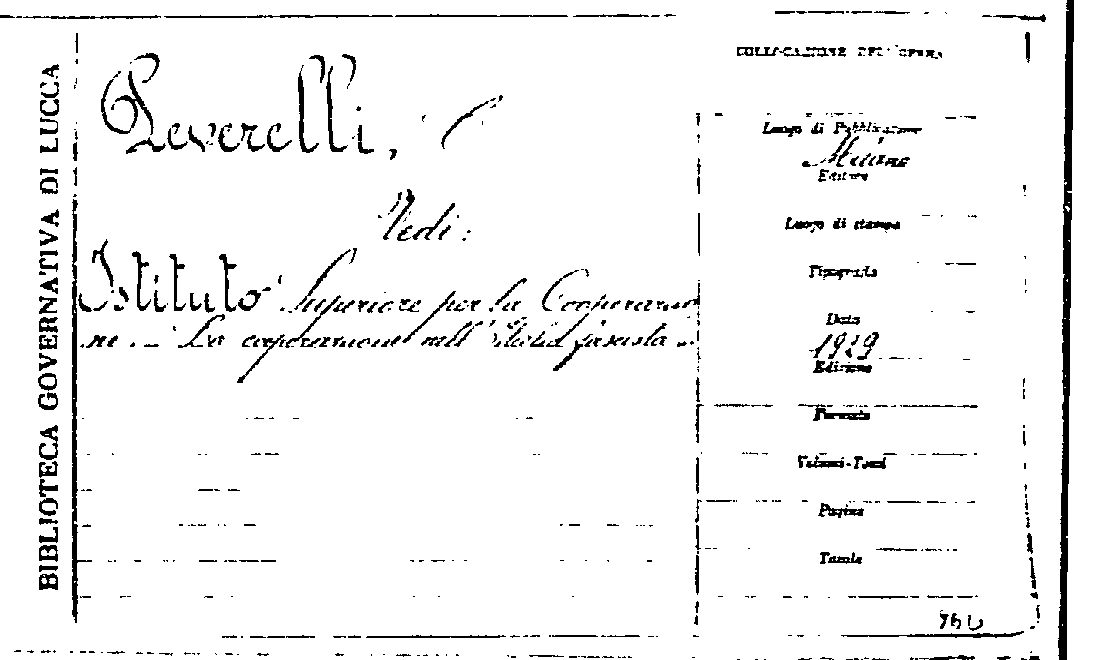 BIBLIOTECA GOVERNATIVA DI LUCCA
Peverelli,
Vedi:
Istituto Superiore per la Cooperazio
ne. - La cooperazione nell'Italia fascista.
COLLOCAZIONE DELL'OPERA
Luogo di Pubblicazione
Milano
Editore
Luogo di stampa
Tipografia
Data
1929
Edizione
Formato
Volumi-Tomi
Pagine
Tavole